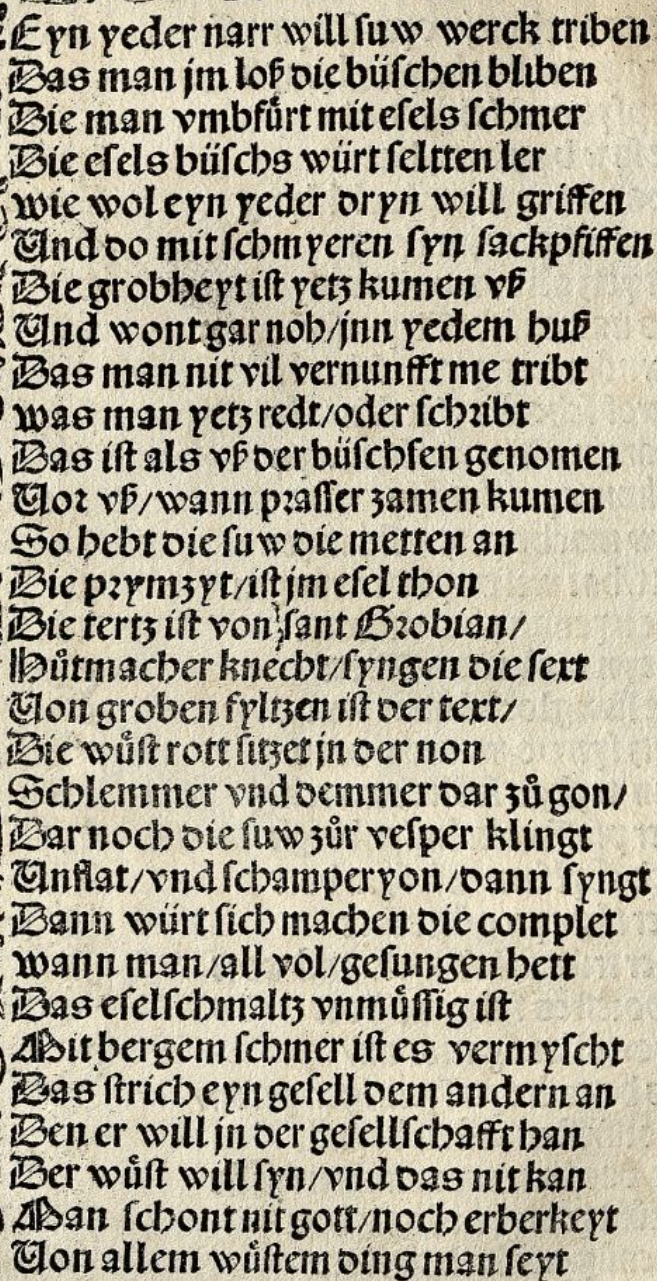 Eyn yeder narr will suw werck triben
Das man jm losz die büschen bliben
Die man vmbfůrt mit esels schmer
Die esels büschs würt seltten ler
wie wol eyn yeder dryn will griffen
Vnd do mit schmyeren syn sackpfiffen
Die grobheyt ist yetz kumen vß
Vnd wont gar noh/jnn yedem huß
Das man nit vil vernunfft me tribt
was man yetz redt/oder schribt
Das ist als vß der büschsen genomen
Vor vß/wann prasser zamen kumen
So hebt die suw die metten an
Die prymzyt/ist jm esel thon
Die tertz ist von sant Grobian/
Hůtmacher knecht/syngen die sext
Von groben fyltzen ist der text/
Die wůst rott sitzet jn der non
Schlemmer vnd demmer dar zů gon/
Dar noch die suw zůr vesper klingt
Vnflat/vnd schamperyon/dann syngt
Dann würt sich machen die complet
wann man/all vol/gesungen hett
Das eselschmaltz vnmůssig ist
Mit bergem schmer ist es vermyscht
Das strich eyn gesell dem andern an
Den er will jn der gesellschafft han
Der wůst will syn/vnd das nit kan
Man schont nit gott/noch erberkeyt
Von allem wůstem ding man seyt